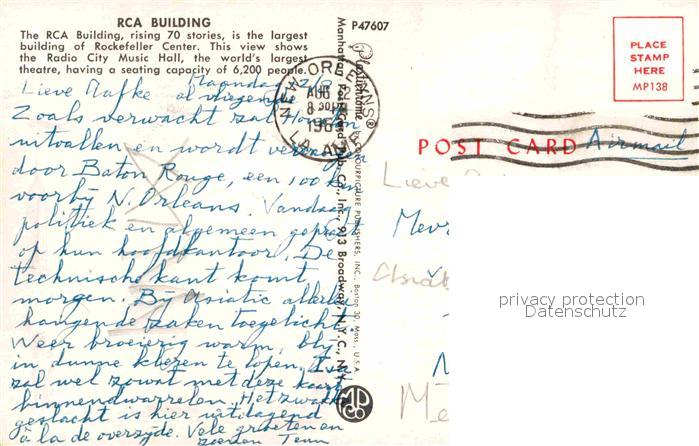 RCA BUILDING
The RCA Building, rising 70 stories, is the largest
building of Rockefeller Center. This view shows
the Radio City Music Hall, the world's largest
theatre, having a seating capacity of 6,200 people.
Maandag
Lieve Mafke al vliegende
Zoals verwacht zal Houston
uitvallen en wordt
door Baton Rouge, een 100 km
voorbij N. Orleans. Vandaag
politiek en algemeen gepraat
op hun hoofdkantoor. De
technische kant komt
morgen. Bij Asiatic allerlei
hangende zaken toegelicht.
Weer broeierig warm, blij
in dunne kleren te lopen.
zal wel zowat met deze kaart
binnendwarrelen. Het zwakke
geslacht is hier uitdagend
à la de overzijde. Vele groeten en
zoenen Teun
NEW ORLEANS
AUG
8
LA.
Plastichrome
BY COLOURPICTURE PUBLISHERS, INC., Boston 30, Mass., U.S.A.
Manhattan Post Card Pub. Co., Inc., 913 Broadway, N.Y.C., N.Y.
P47607
PLACE
STAMP
HERE
MP138
POST CARD
Airmail
Lieve
privacy protection
Datenschutz